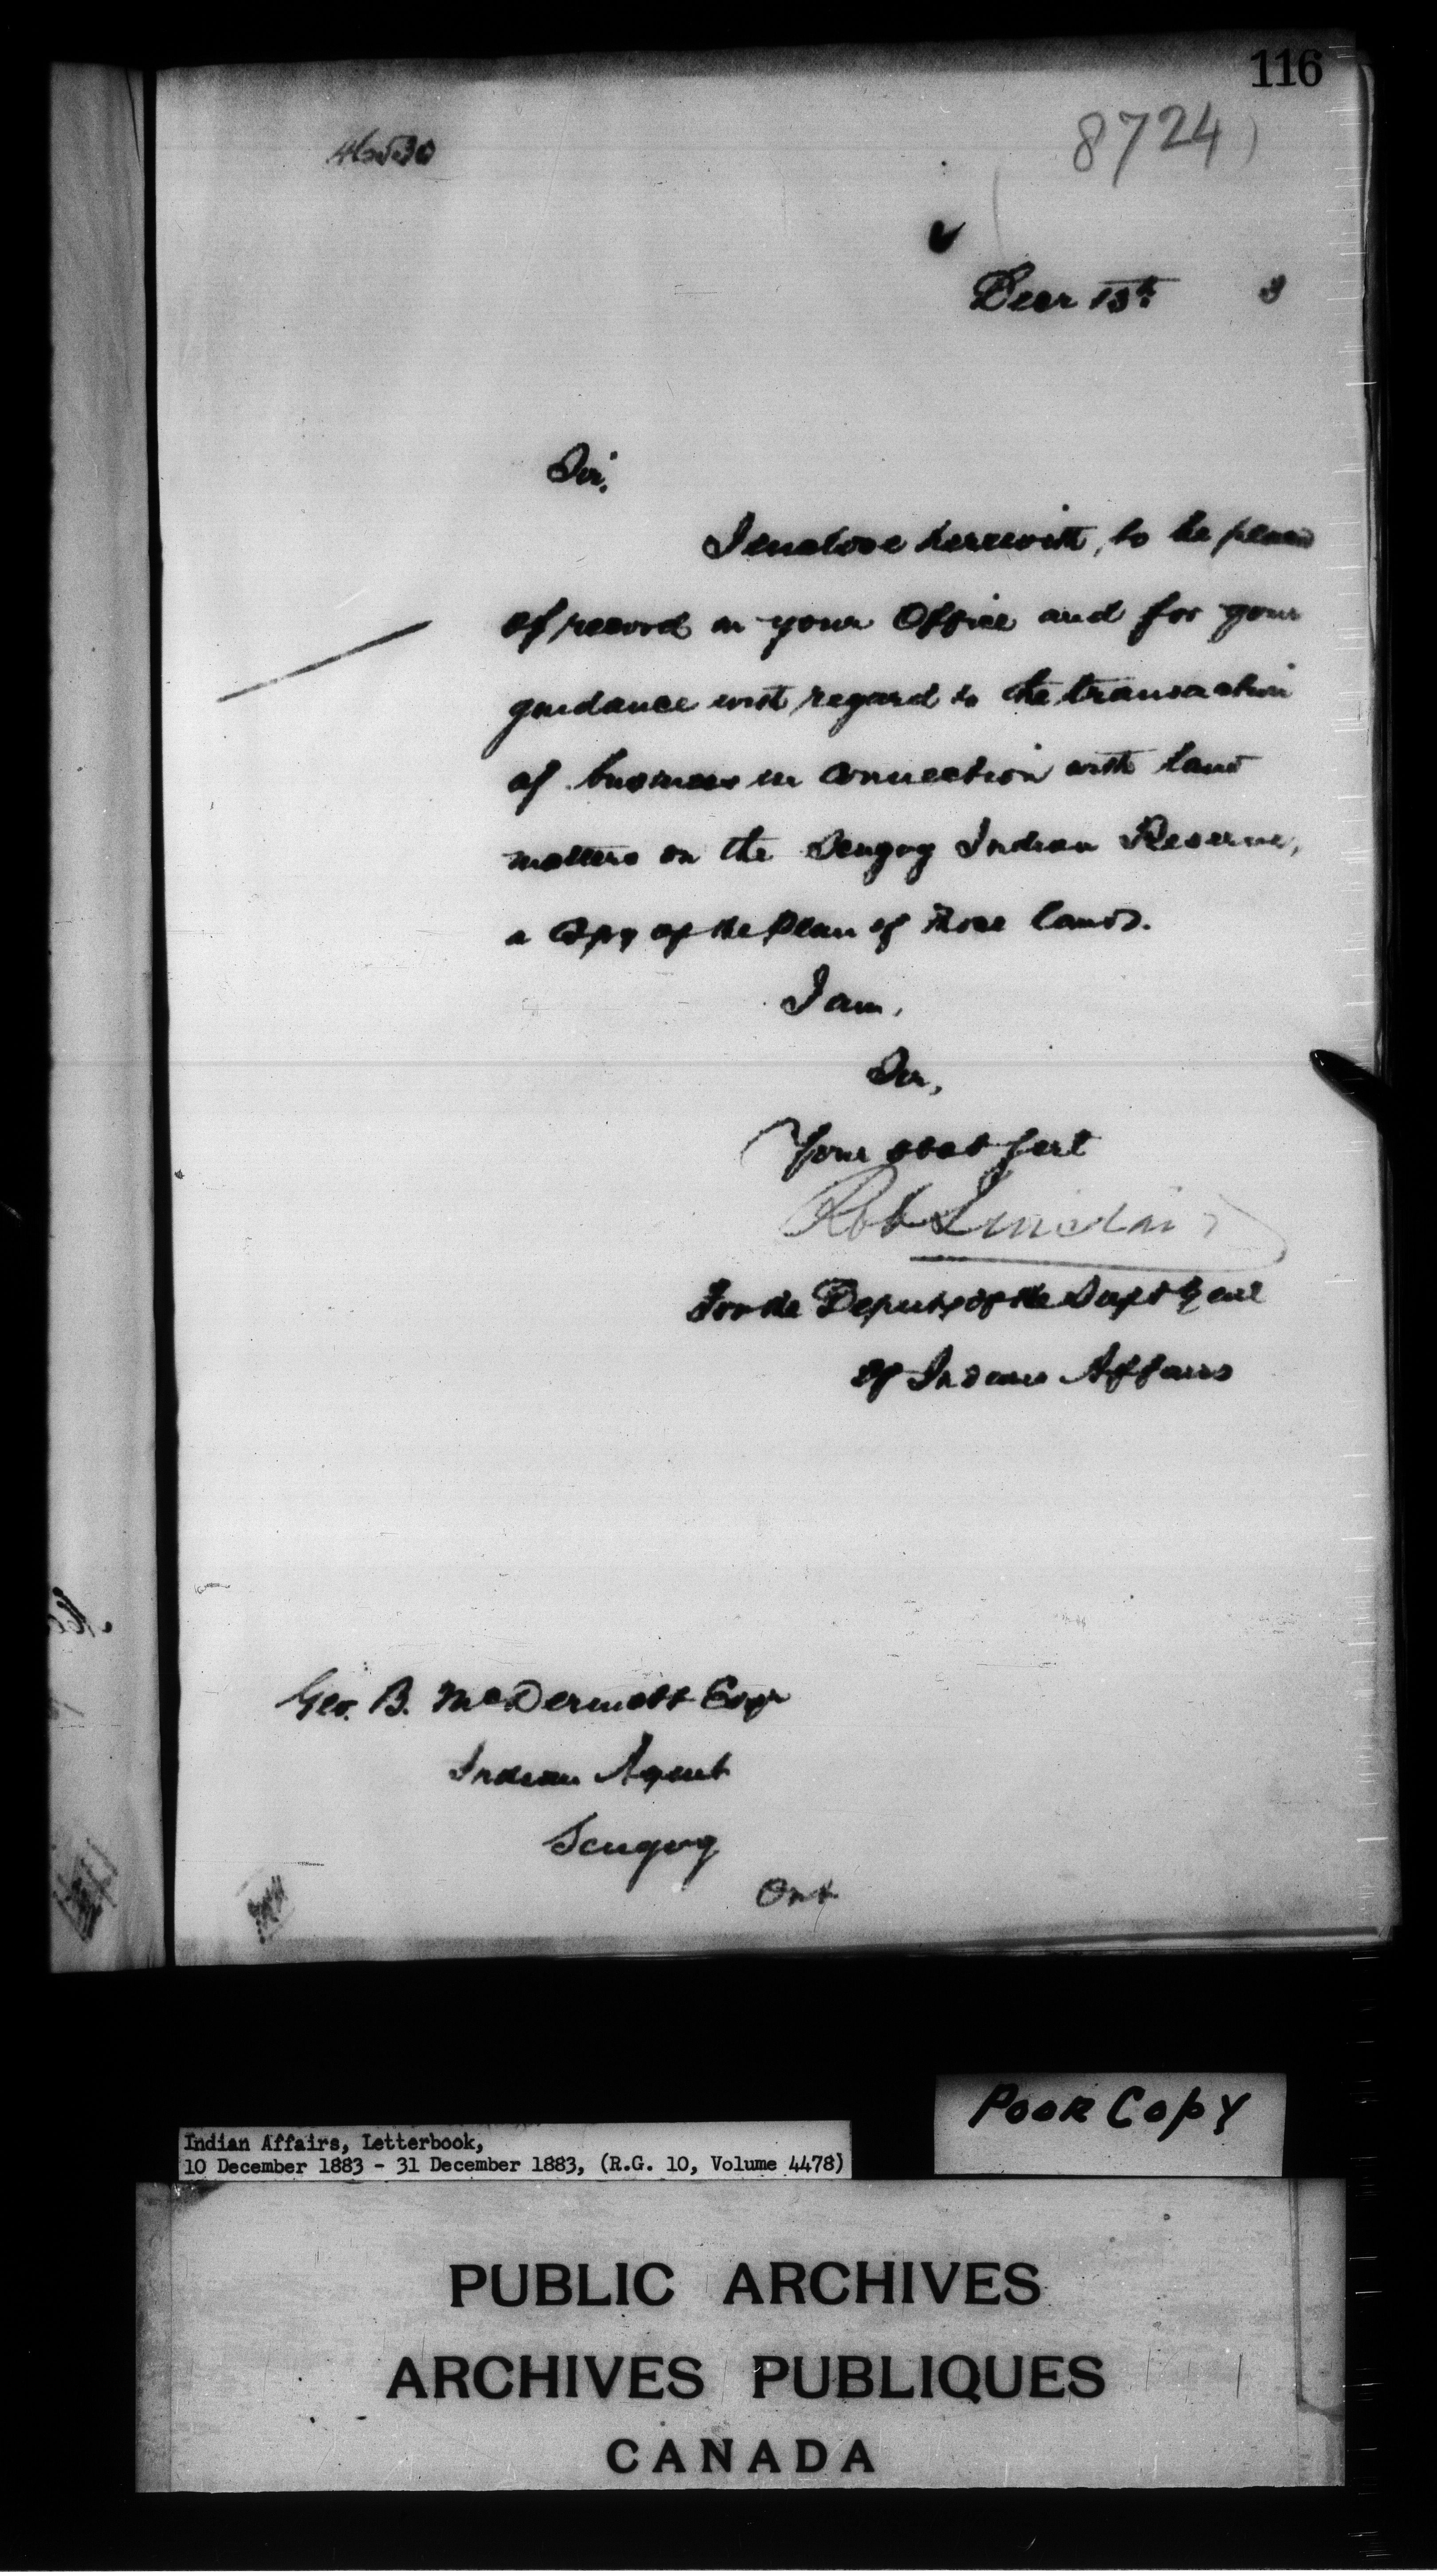 116
8724
46530
Decr 13th 3
Sir,
I enclose herewith, to be placed
of record in your Office and for your
guidance with regard to the transaction
of business in connection with land
matters on the Scugog Indian Reserve,
a Copy of the Plan of those lands.
I am,
Sir,
Your obdt Servt
Rob Sinclair
For the Deputy of the Supt Genl
of Indian Affairs
Geo. B. McDermott Esqr
Indian Agent
Scugog
Ont
Poor Copy
Indian Affairs, Letterbook,
10 December 1883 - 31 December 1883, (R.G. 10, Volume 4478)
PUBLIC ARCHIVES
ARCHIVES PUBLIQUES
CANADA